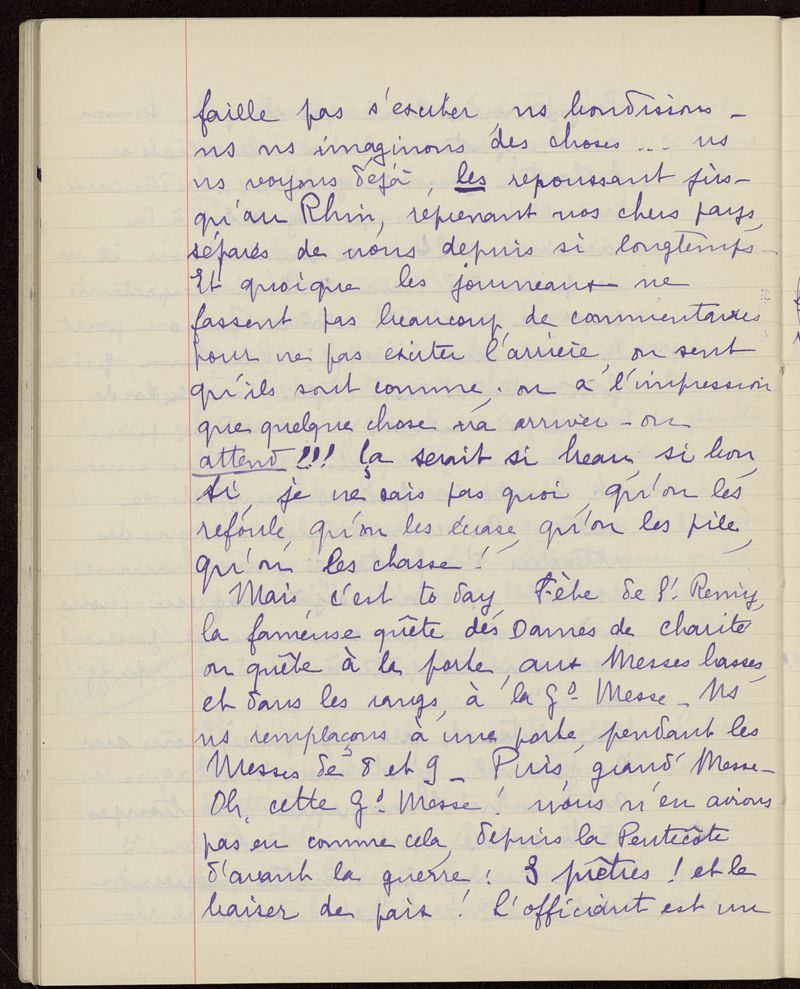 faille pas s'exciter, ns bondissons –
ns ns imaginons des choses ... ns
ns voyons déjà, les repoussant jus-
qu'au Rhin, reprenant nos chers pays,
séparés de nous depuis si longtemps –
Et quoique les journeaux ne
fassent pas beaucoup de commentaires
pour ne pas exciter l'arrière, on sent
qu'ils sont comme : on a l'impression
que quelque chose va arriver – on
attend !!! Ça serait si beau, si bon,
si, je ne sais pas quoi, qu'on les
refoule, qu'on les écrase, qu'on les pile,
qu'on les chasse !
Mais c'est to day, Fête de St. Remy,
la fameuse quête des Dames de charité
on quête à la porte, aux Messes basses,
et dans les rangs, à la Gd. Messe – Ns
ns remplaçons à une porte, pendant les
Messes de 8 et 9 – Puis, grand' Messe –
Oh, cette Gd. Messe ! nous n'en avions
pas eu comme cela, depuis la Pentecôte
d'avant la guerre ! 3 prêtres ! et le
baiser de paix ! L'officiant est un